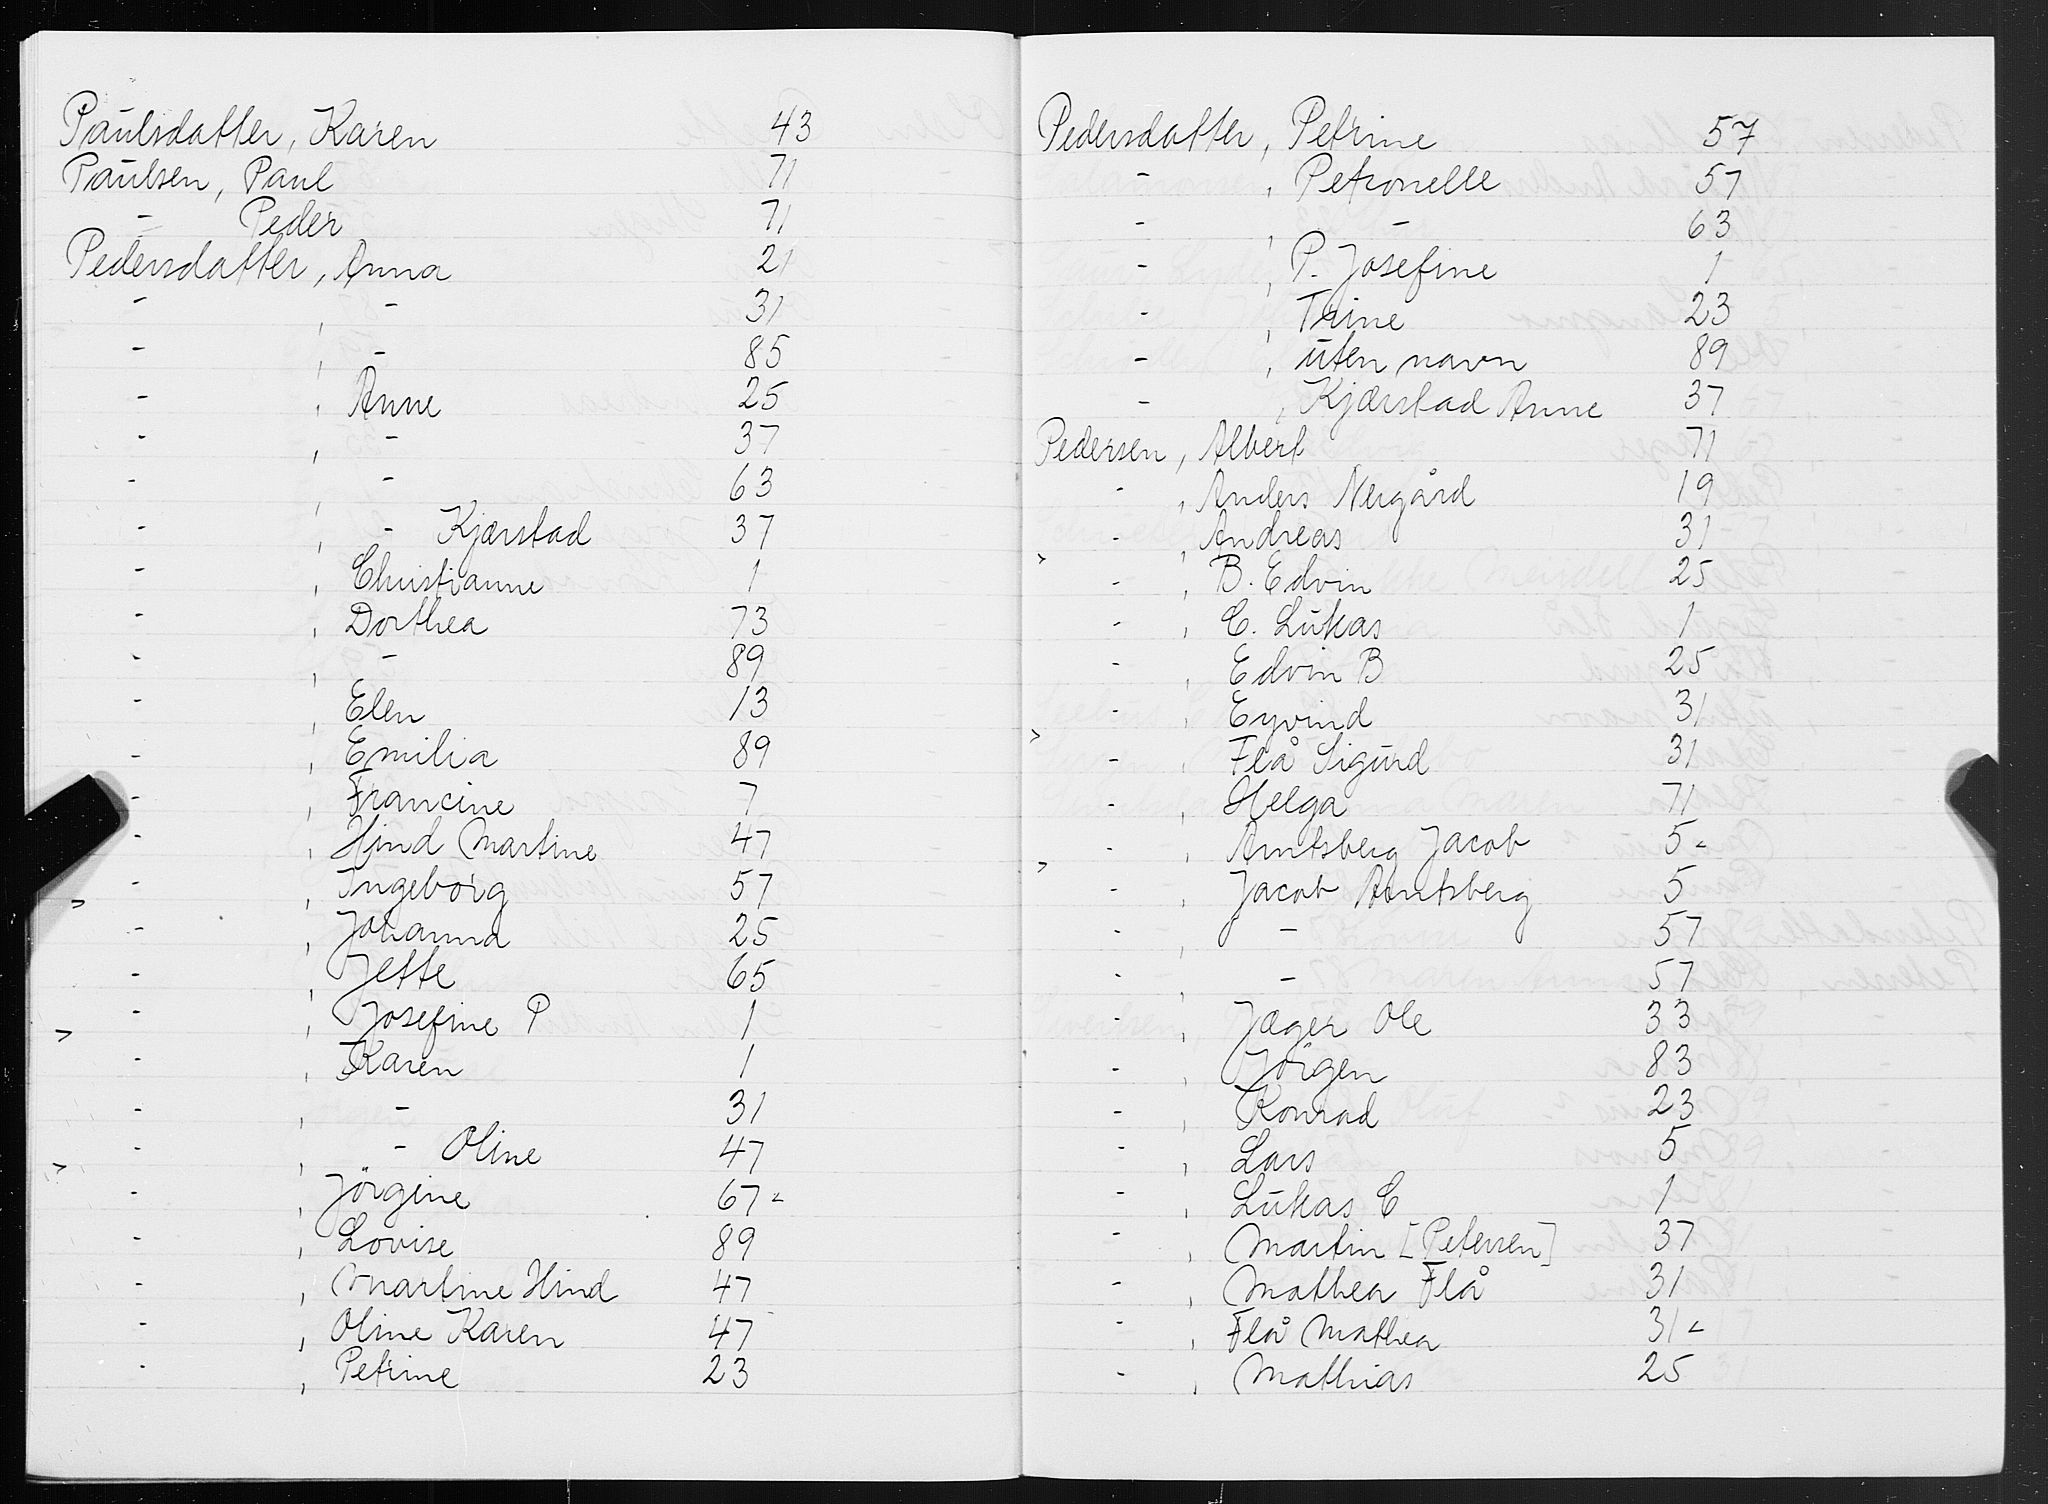 Paulsdatter, Karen 43
Paulsen, Paul 71
- Peder 71
Pedersdatter, Anna 21
- , - 31
- , - 85
- , Anne 25
- , - 37
- , - 63
- , - Kjærstad 37
- , Christianne 1
- , Dorthea 73
- , - 89
- , Elen 13
- , Emilia 89
- , Francine 7
- , Hind Martine 47
- , Ingeborg 57
- , Johanna 25
- , Jette 65
- , Josefine P 1
- , Karen 1
- , - 31
- , - Oline 47
- , Jörgine 67
- , Lovise 89
- , Martine Hind 47
- , Oline Karen 47
- , Petrine 23
Pedersdatter, Petrine 57
- , Petronelle 57
- , - 63
- , P. Josefine 1
- , Trine 23
- , uten navn 89
- , Kjærstad Anne 37
Pedersen, Albert 71
- , Anders Nergård 19
- , Andreas 31
- , B. Edvin 25
- , C. Lukas 1
- , Edvin B 25
- , Eyvind 31
- , Flå Sigurd 31
- , Helga 71
- , Arntsberg Jacob 5
- , Jacob Arntsberg 5
- , - 57
- , - 57
- , Jæger Ole 33
- , Jörgen 83
- , Konrad 23
- , Lars 5
- , Lukas C 1
- , Martin [Petersen] 37
- , Mathea Flå 31
- , Flå Mathea 31
- , Mathias 25